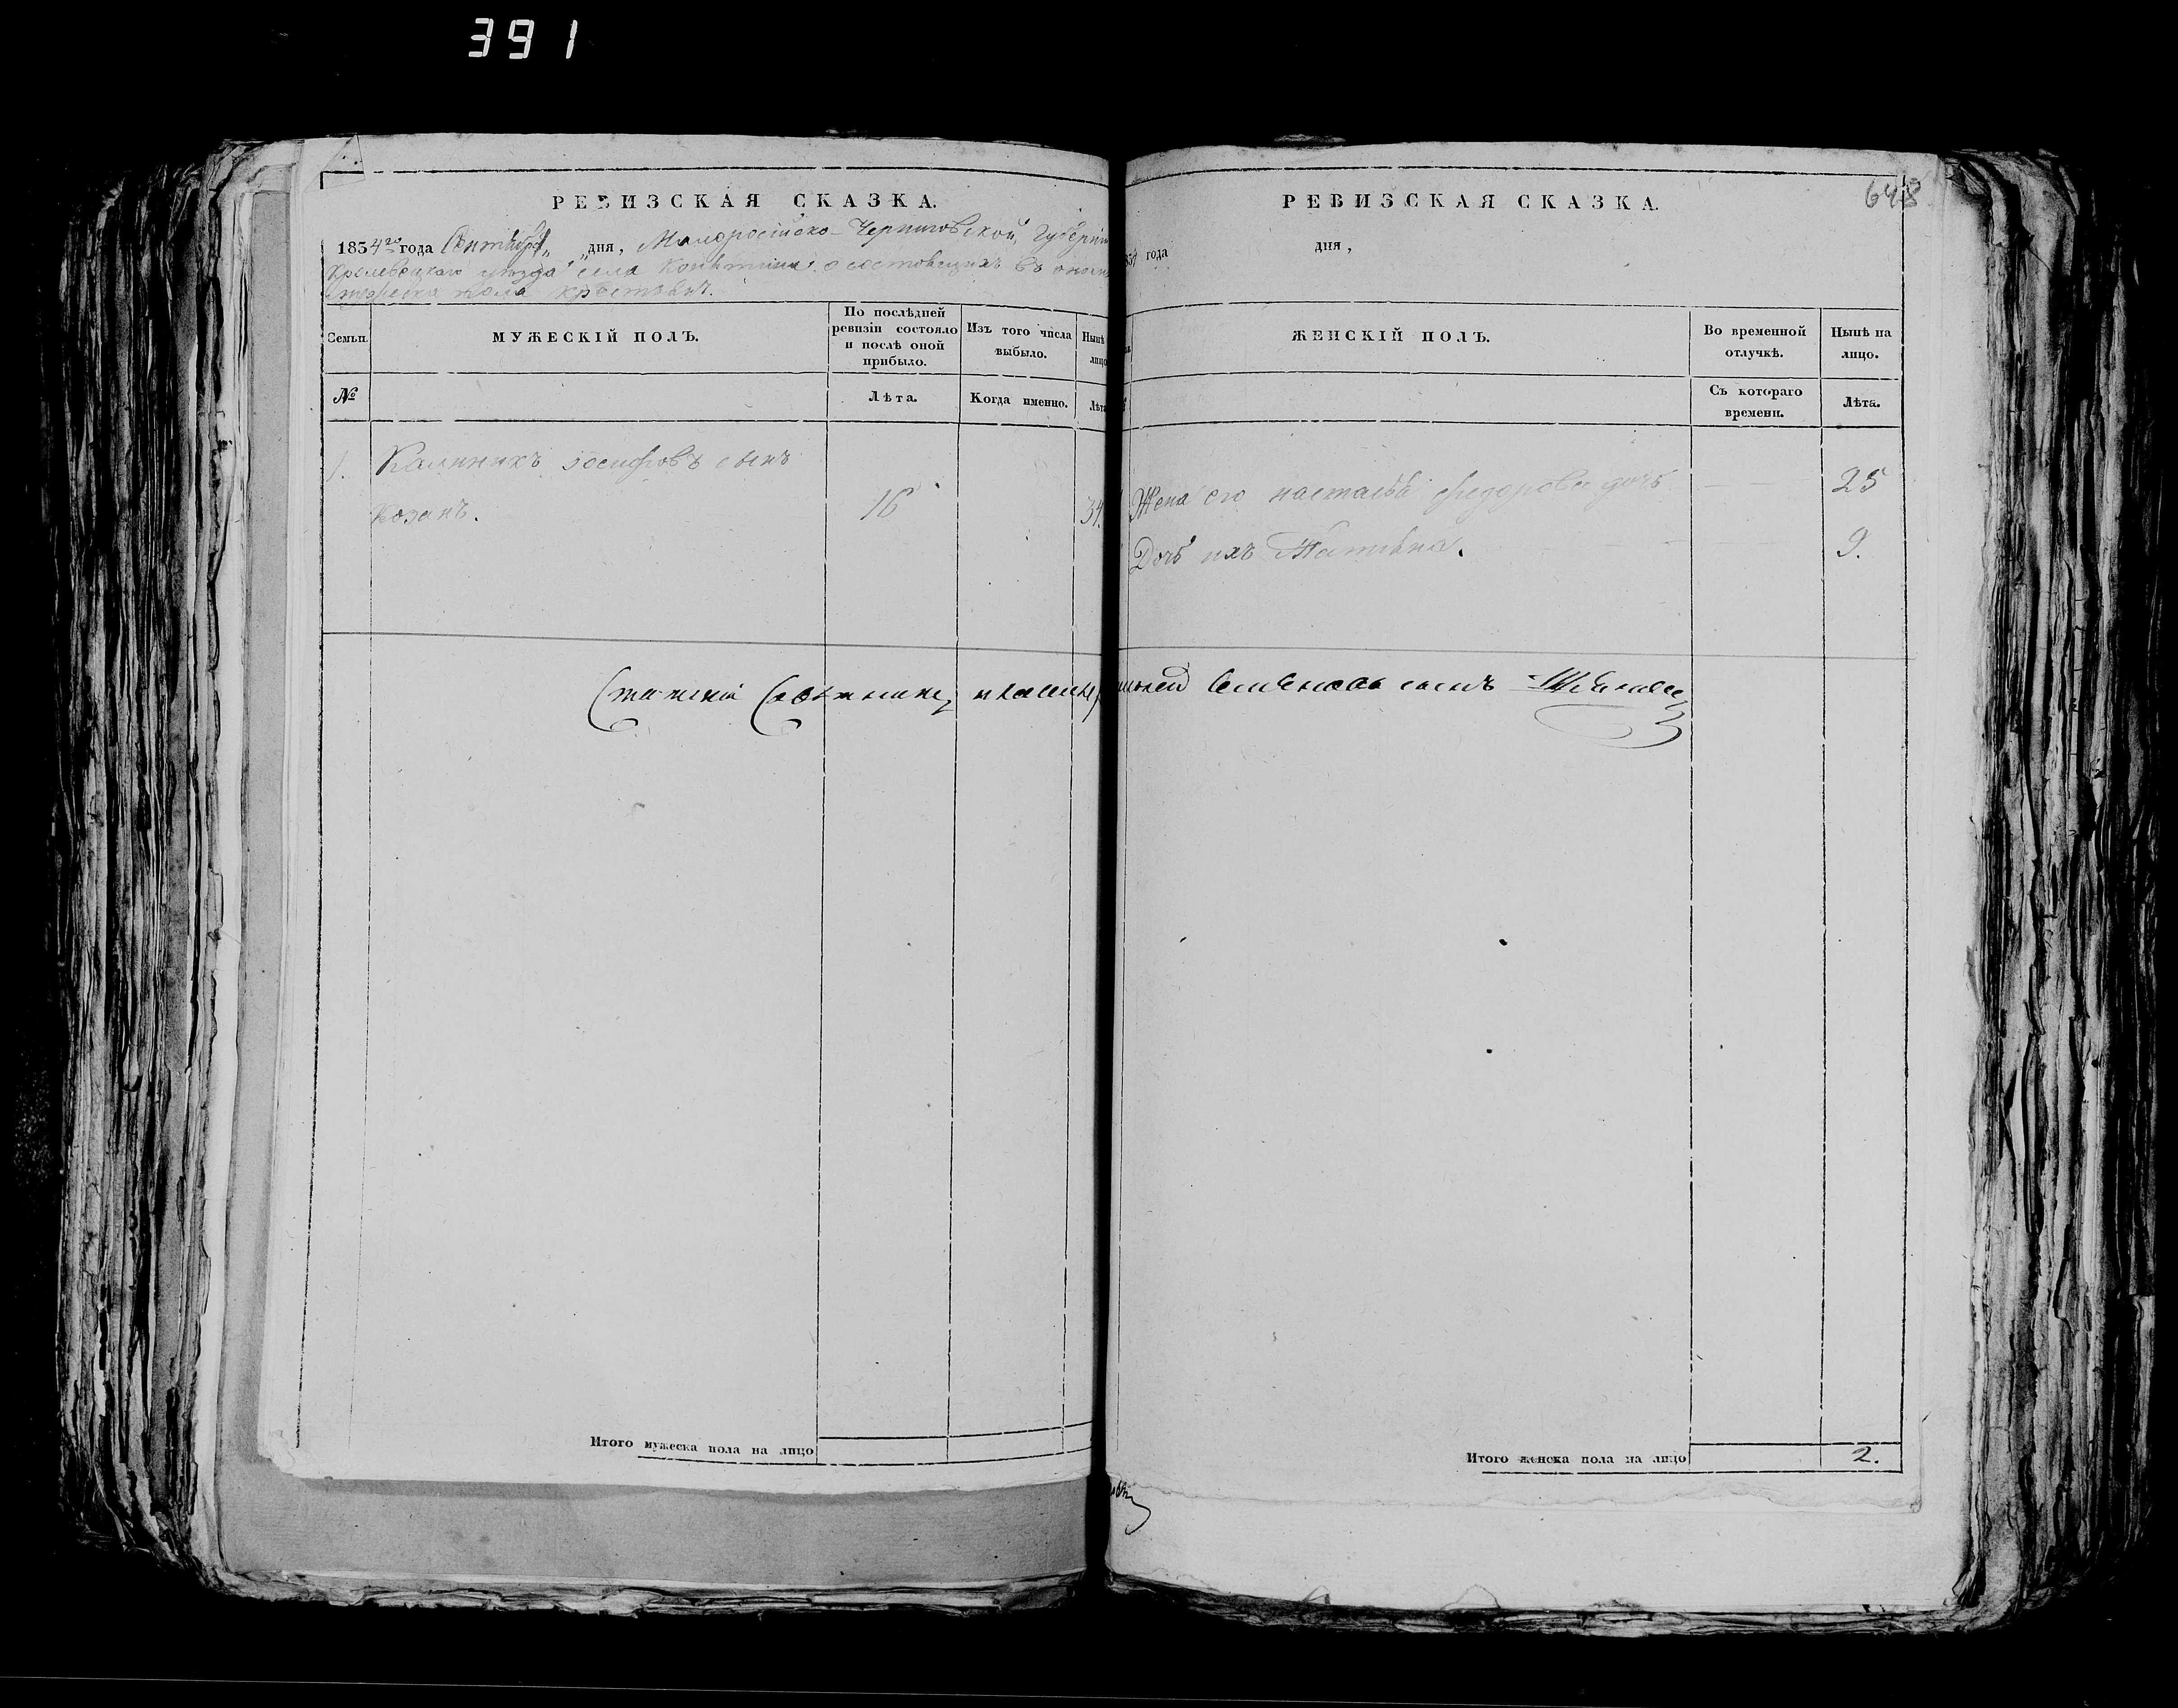 391
РЕВИЗСКАЯ СКАЗКА.
1834го года Сентября „ „дня, Малоросійско-Черниговской, Губерніи
Кролевецкаго уѣзда села о состовщихъ въ
мужеска пола
Семьи. МУЖЕСКІЙ ПОЛЪ. По послѣдней ревизіи состояло и послѣ оной прибыло. Изъ того числа выбыло. Нынѣ лицо
№ Лѣта. Когда именно. Лѣта
1. Калиникъ Іосифовъ сынъ
Козакъ. 16 34.
Итого мужеска пола на лицо
РЕВИЗСКАЯ СКАЗКА.
648
1834 года дня,
ЖЕНСКІЙ ПОЛЪ. Во временной отлучкѣ. Нынѣ на лицо.
Съ котораго времени. Лѣта.
Жена его Настасья Федорова дочь 25
Дочь ихъ Татьяна. 9.
сынъ
Итого женска пола на лицо 2.